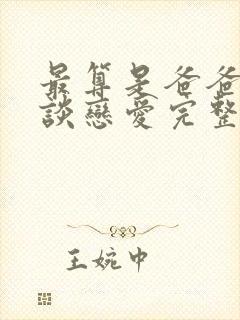 最算是爸爸
談戀愛完整
王婉中